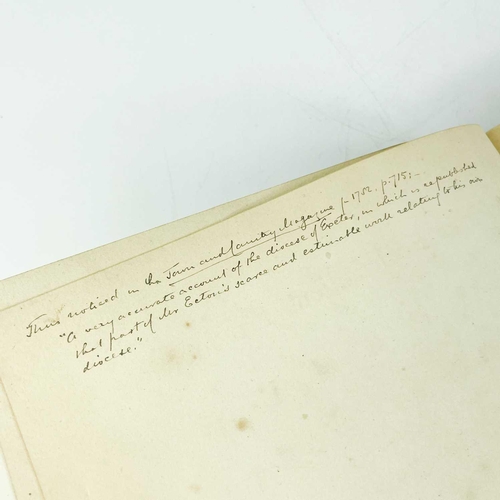 Thus noticed in the Town and Country Magazine f. 1782. p. 715:-
"A very accurate account of the diocese of Exeter, in which is republished
that part of Mr Ecton's scarce and estimable work relating to his own
diocese."